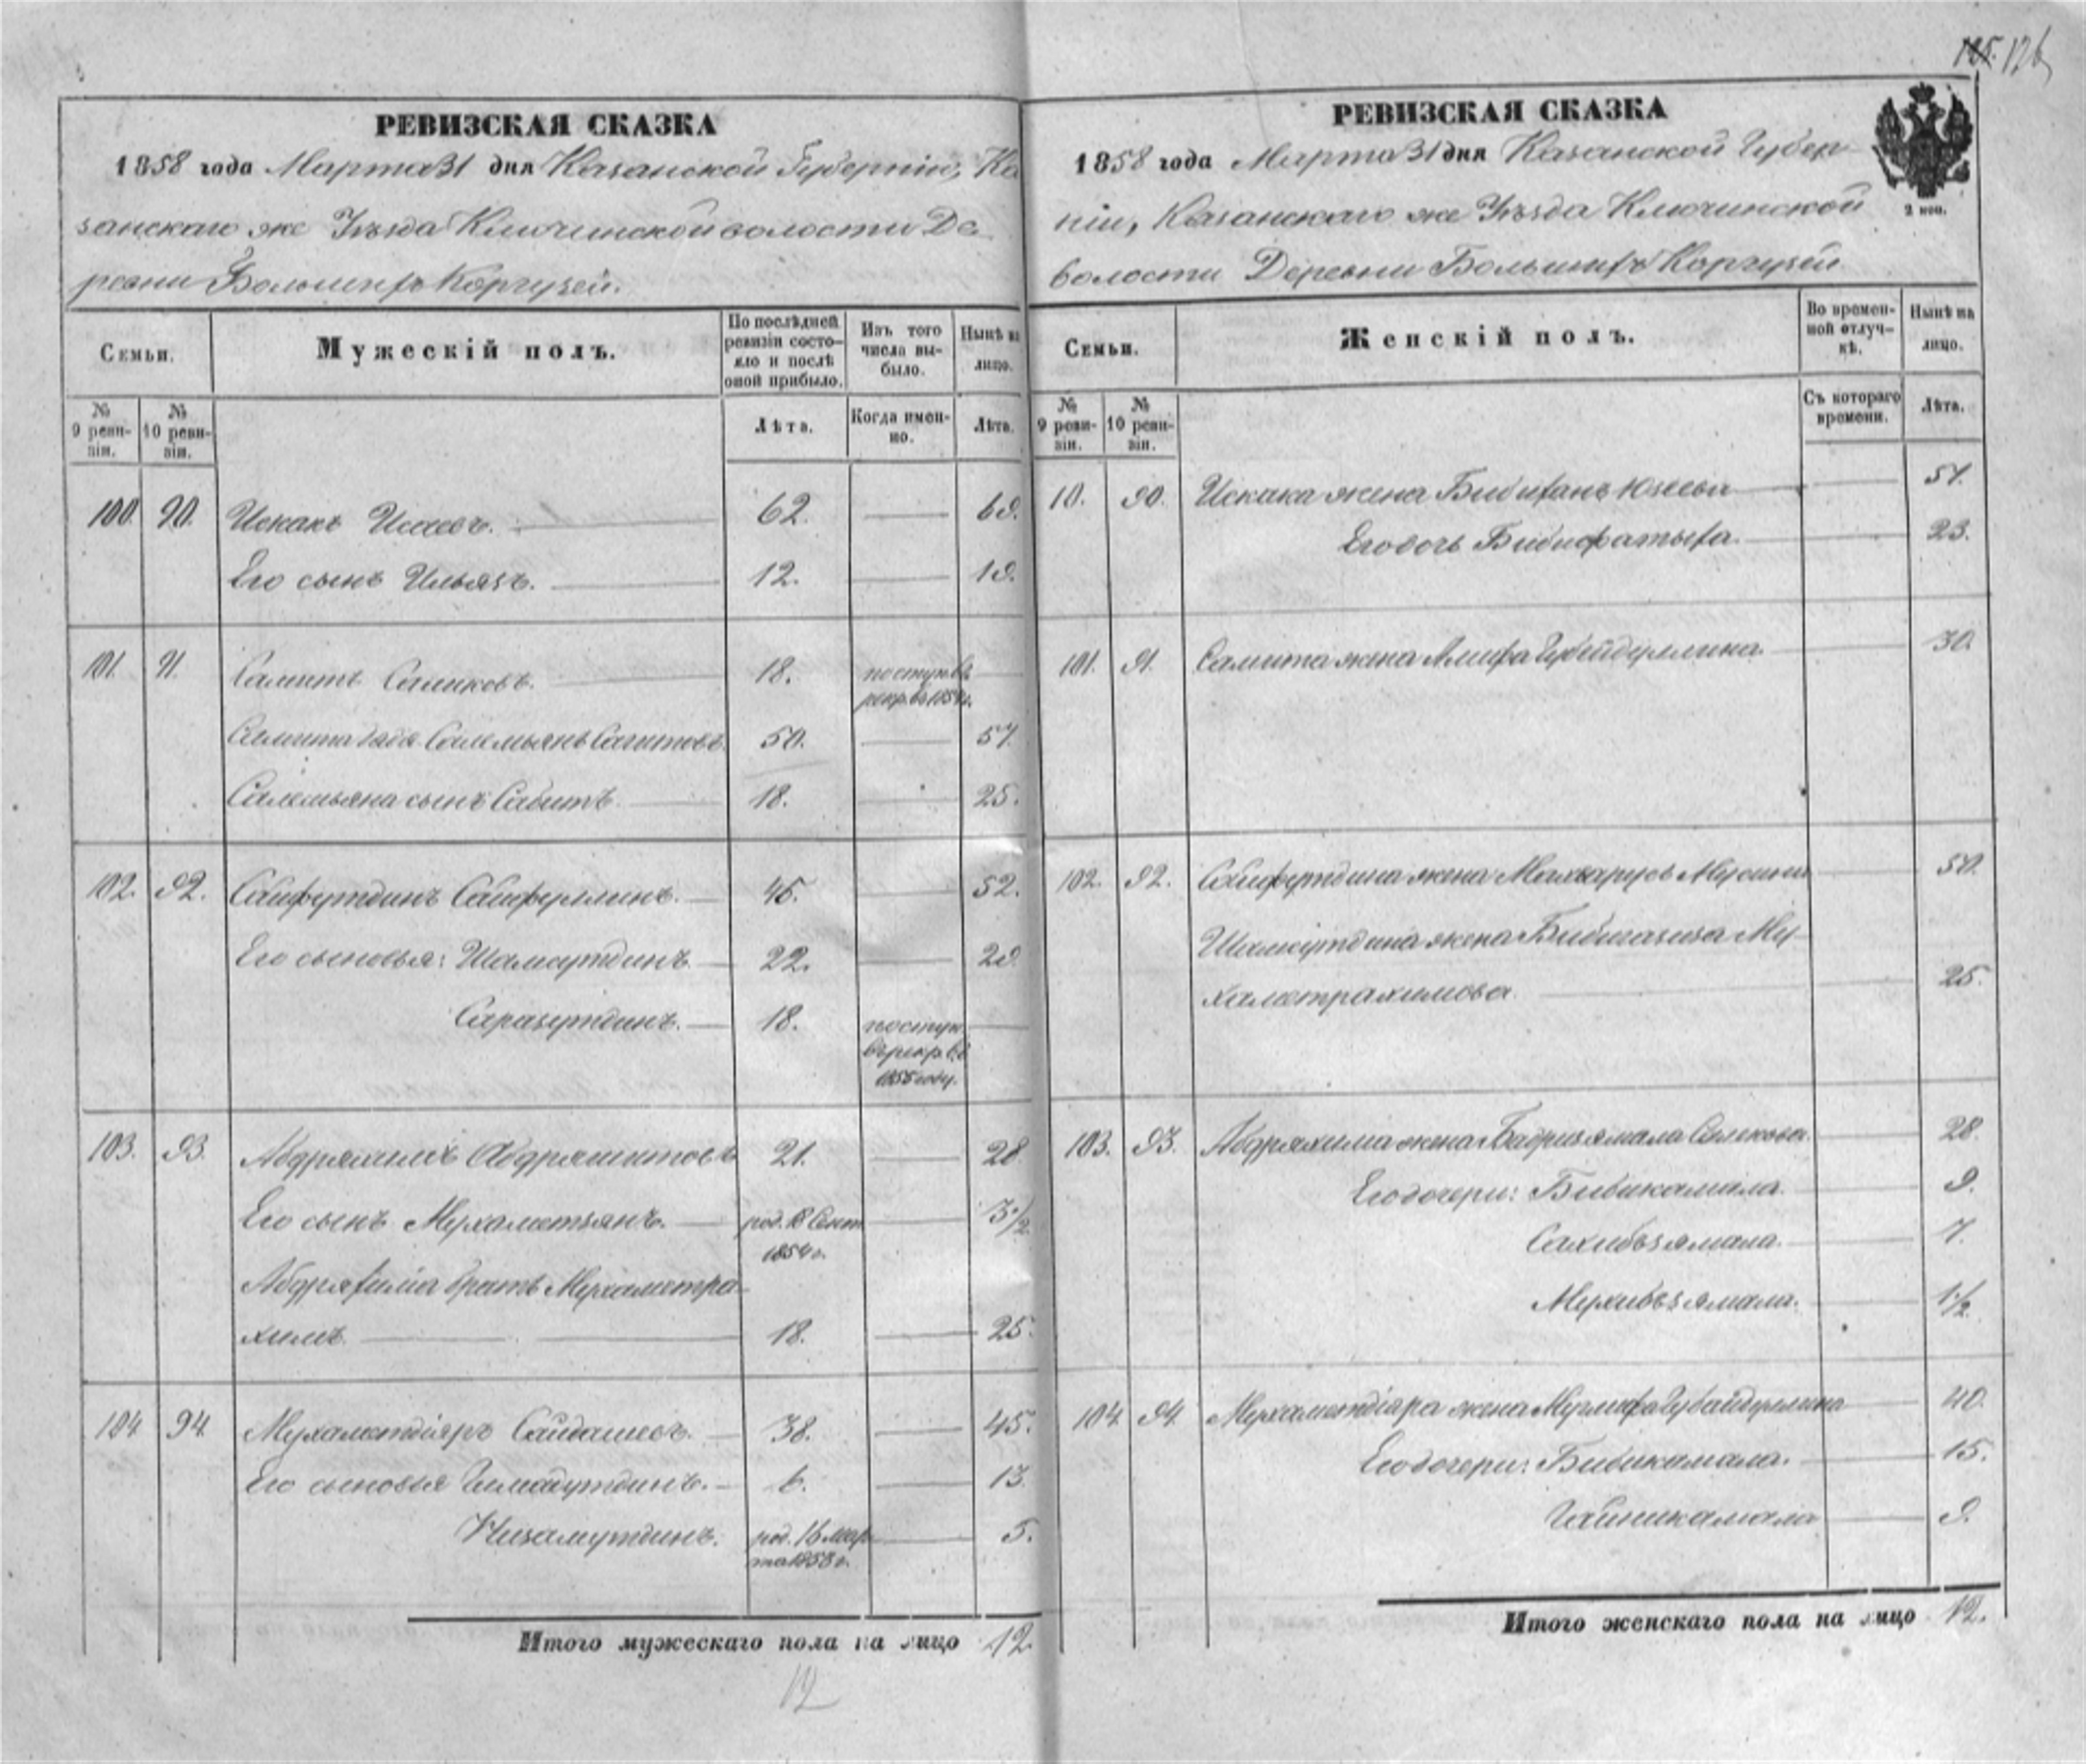 125. 126
РЕВИЗСКАЯ СКАЗКА
1858 года Марта 31 дня Казанской Губерніи, Ка
занскаго же Уѣзда Ключинской волости Де
ревни Большихъ Коргузей.
Семьи.
Мужескій полъ.
По послѣдней ревизіи состояло и послѣ оной прибыло.
Изъ того числа выбыло.
Нынѣ на лицо.
№ 9 ревизіи.
№ 10 ревизіи.
Лѣта.
Когда именно.
Лѣта.
100. 90. Исхакъ Исаевъ. 62. 69.
Его сынъ Ильязъ. 12. 19.
101. 91. Самитъ Саликовъ. 18. поступ. въ
рекр. въ 1854 г.
Самита дядя Салемьянъ Сагитовъ 50. 57.
Салемьяна сынъ Сабитъ. 18. 25.
102. 92. Сайфутдинъ Сайфуллинъ. 45. 52.
Его сыновья: Шамсутдинъ 22. 29.
Саразутдинъ. 18. поступ.
въ рекр. въ
1855 году.
103. 93. Абдряхимъ Абдряшитовъ 21. 28.
Его сынъ Мухаметзянъ. род. 18 Сент. 3 1/2
1854 г.
Абдряхима братъ Мухаметра-
химъ 18. 25.
104. 94. Мухаметдіяръ Сайдашевъ. 38. 45.
Его сыновья Гимадутдинъ. 6. 13.
Низамутдинъ. род. 16 Мар 5.
та 1853 г.
Итого мужескаго пола на лицо 12.
12
РЕВИЗСКАЯ СКАЗКА
2 коп.
1858 года Марта 31 дня Казанской Губер-
ніи, Казанскаго же Уѣзда Ключинской
волости Деревни Большихъ Коргузей
Семьи.
Женскій полъ.
Во временной отлучкѣ.
Нынѣ на лицо.
№ 9 ревизіи.
№ 10 ревизіи.
Съ котораго времени.
Лѣта.
10. 90. Исхака жена Бибиханъ 51.
Его дочь Бибифатыха. 23.
101. 91. Самита жена Алифа Губейдуллина 30.
102. 92. Сайфутдина жена Мусина 50.
Шамсутдина жена Му-
хаметрахимова 25.
103. 93. Абдряхима жена Бадризямала Саликова. 28.
Его дочери: Бибикамала. 9.
Сахибъзямала. 7.
Мухибъзямала. 1 1/2
104. 94. Мухаметдіяра жена Губайдуллина 40.
Его дочери: Бибикамала. 15.
Гайникамала 9.
Итого женскаго пола на лицо 12.